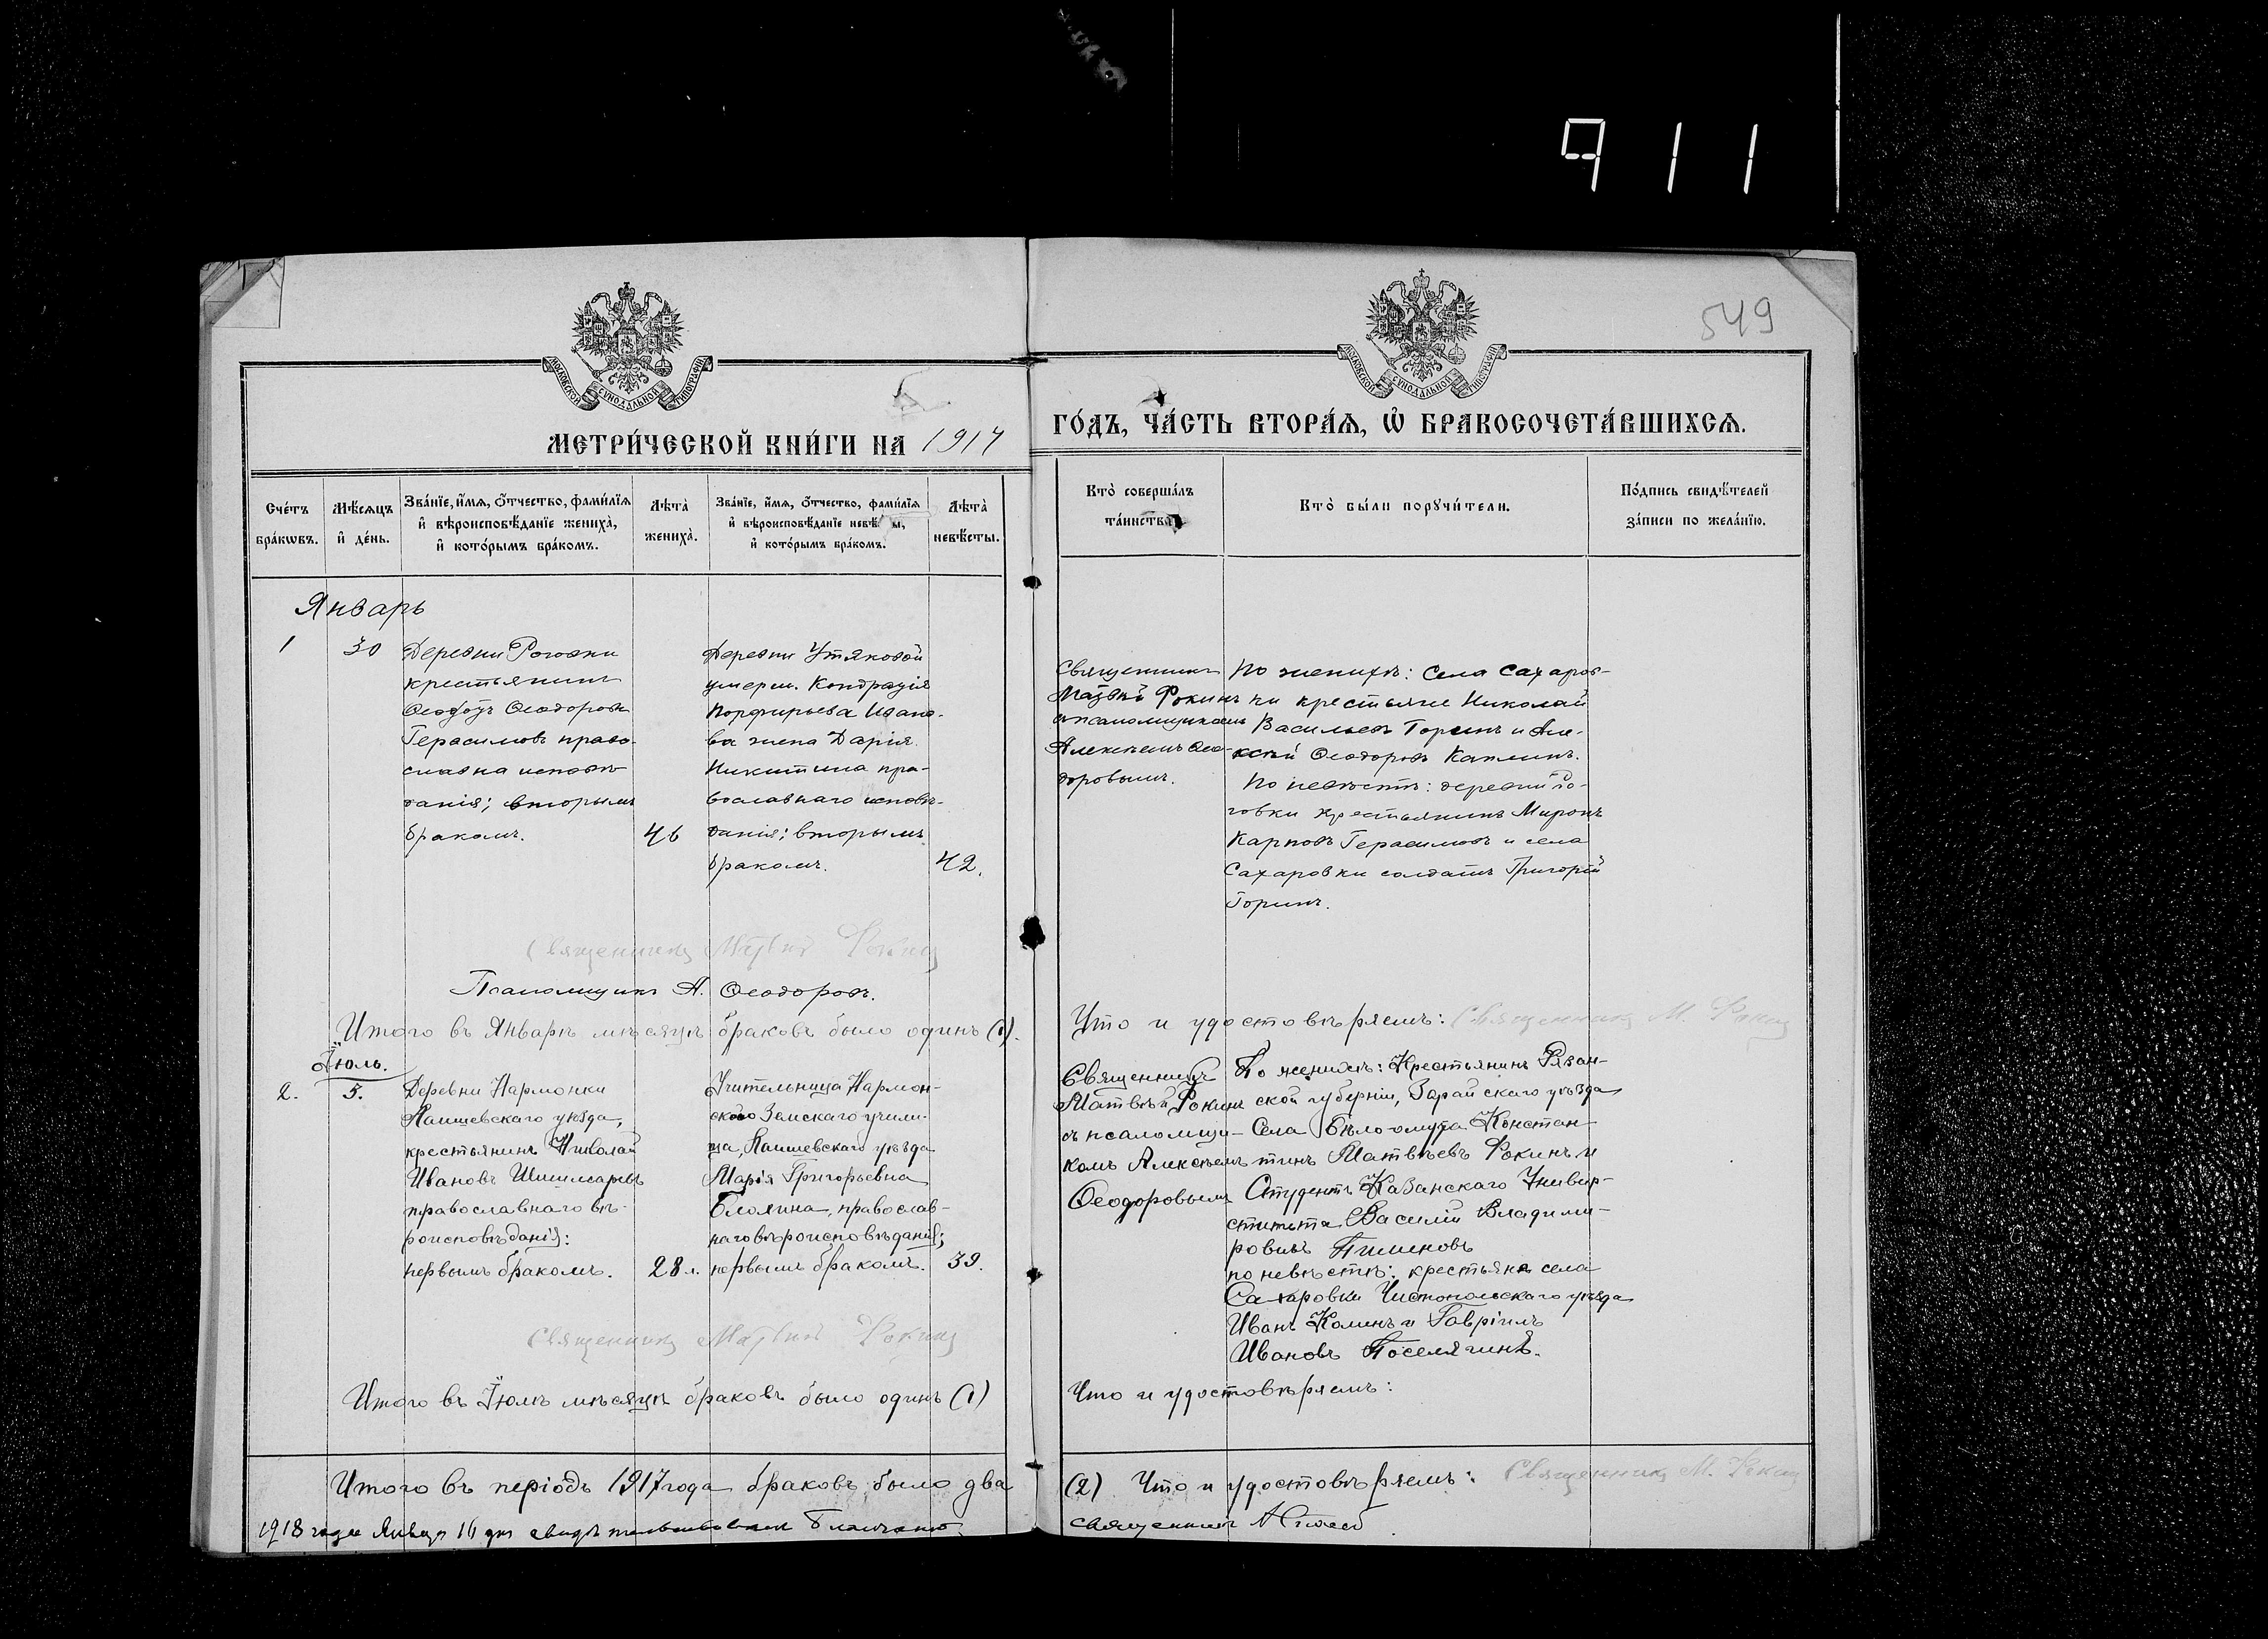 911
549
МОСКОВСКОЙ СУНОДАЛЬНОЙ ТИПОГРАФІИ
МОСКОВСКОЙ СУНОДАЛЬНОЙ ТИПОГРАФІИ
МЕТРИ́ЧЕСКОЙ КНИ́ГИ НА 1917
ГО́ДЪ, ЧА́СТЬ ВТОРА́Я, Ѡ БРАКОСОЧЕТА́ВШИХСЯ.
Сче́тъ бра́кωвъ.
Мѣ́сяцъ и де́нь.
Зва́нїе, и́мя, ѻ́тчество, фами́лїя и вѣроисповѣ́данїе жениха̀, и кото́рымъ бра́комъ.
Лѣта̀ жениха̀.
Зва́нїе, и́мя, ѻ́тчество, фами́лїя и вѣроисповѣ́данїе невѣ́ ы, и кото́рымъ бра́комъ.
Лѣта̀ невѣ́сты.
Кто̀ соверша́лъ та́инство
Кто̀ бы́ли порꙋчи́тели.
По́дпись свидѣ́телей за́писи по жела́нїю.
Январь
1
30
Деревни Роговки
крестьянинъ
Ѳеодоръ Ѳеодоровъ
Герасимовъ право-
славна исповѣ
данія; вторымъ
бракомъ.
46
Деревни Утяковой
умерш. Кондратія
Порфирьева Ивано-
ва жена Дарія
Никитина пра-
вославнаго исповѣ-
данія; вторымъ
бракомъ.
42.
Священникъ
Матѳей Фокинъ
псаломщикомъ
Алексѣемъ Ѳео-
доровымъ.
По женихѣ: Села Сахаров-
ки крестьяне Николай
Васильевъ Горинъ и Але-
ксѣй Ѳеодоровъ Каплинъ.
По невѣстѣ: деревни Ро-
говки крестьянинъ Миронъ
Карповъ Герасимовъ и села
Сахаровки солдатъ Григорій
Горинъ.
Священникъ Матѳей Фокинъ
Псаломщикъ А. Ѳеодоровъ.
Итого въ Январѣ мѣсяцѣ браковъ было одинъ (1).
Что и удостовѣряемъ: Священникъ М. Фокинъ
Іюль.
2.
5.
Деревни Нармонки
Лаишевскаго уѣзда,
крестьянинъ Николай
Ивановъ
православнаго вѣ-
роисповѣданія:
первымъ бракомъ.
28 л.
Учительница Нармон-
скаго Земскаго учили-
ща, Лаишевскаго уѣзда
Марія Григорьевна
православ-
наго вѣроисповѣданія;
первымъ бракомъ.
39.
Священникъ
Матвѣй Фокинъ
съ псаломщи-
комъ Алексѣемъ
Ѳеодоровымъ
По женихѣ: Крестьянинъ Рязан-
ской губерніи, Зарайскаго уѣзда
Села Бѣлоомута Констан-
тинъ Матвѣевъ Фокинъ и
Студентъ Казанскаго Универ-
ститета Василій Владими-
ровичъ Пименовъ
по невѣстѣ: крестьяне села
Сахаровки Чистопольскаго уѣзда
Иванъ Колинъ и Гавріилъ
Ивановъ Поселягинъ.
Священникъ Матѳей Фокинъ
Итого въ Іюлѣ мѣсяцѣ браковъ было одинъ (1)
Что и удостовѣряемъ:
Итого въ періодъ 1917 года браковъ было два
(2) Что и удостовѣряемъ: Священникъ М. Фокинъ
1918 года Января 16 дня свидѣтельствовалъ Благочинный
священникъ